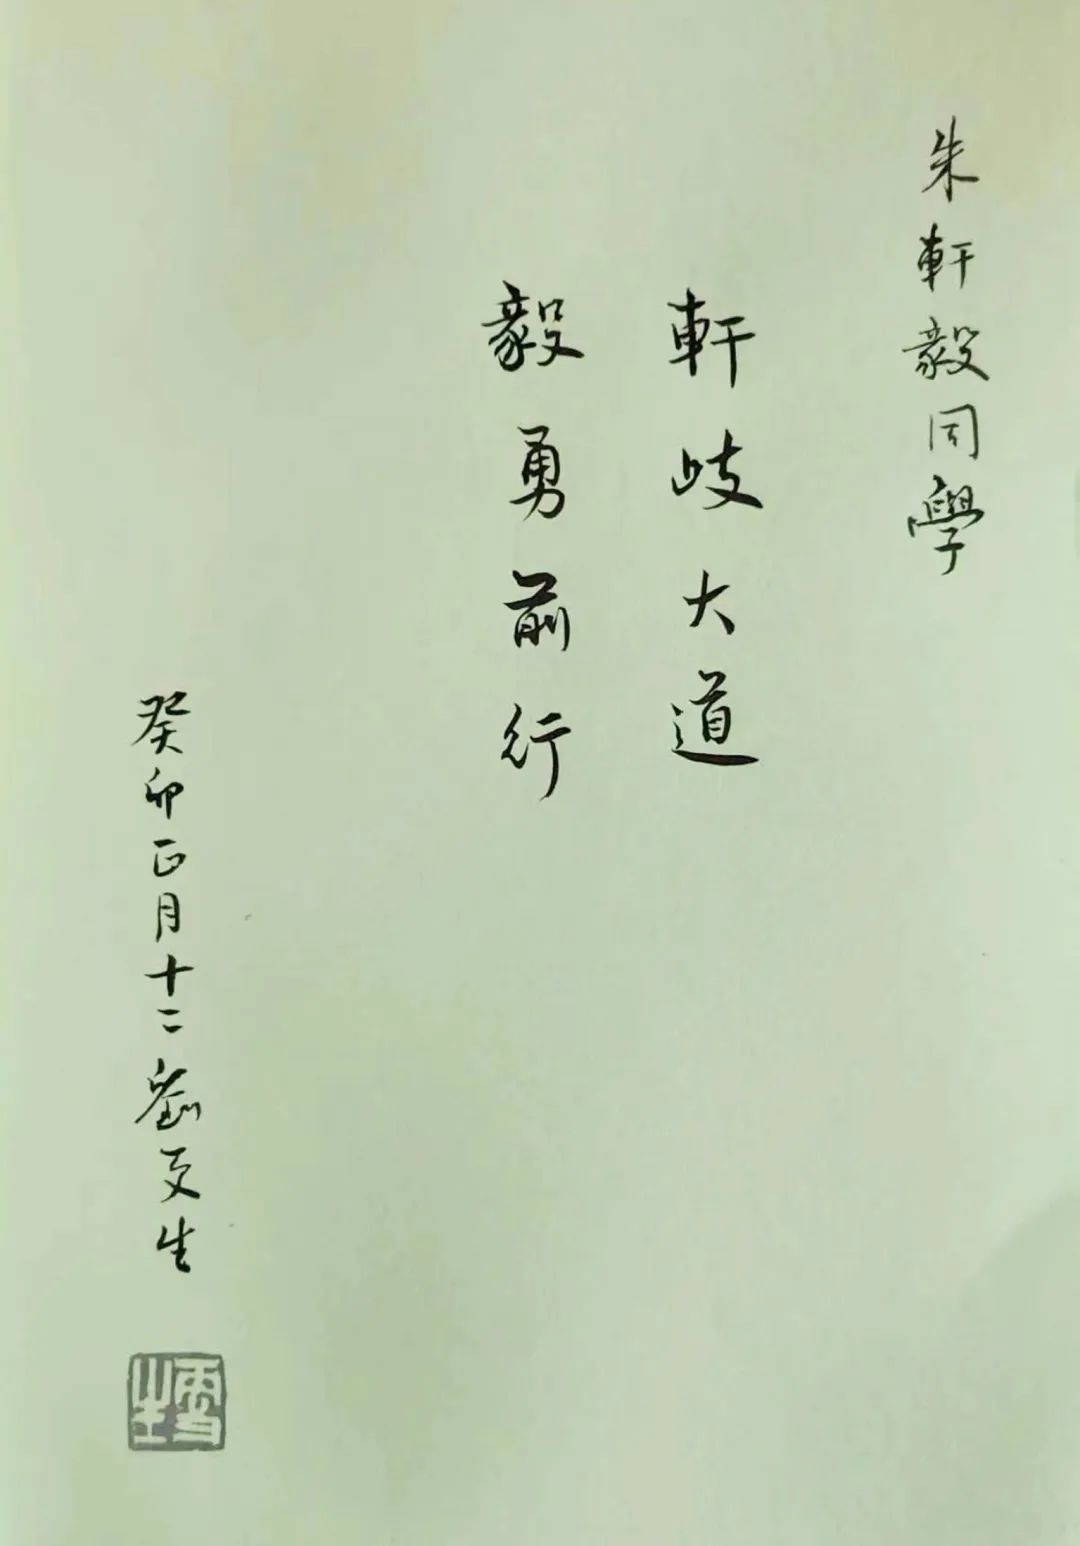 朱軒毅同學
軒岐大道
毅勇前行
癸卯正月十二劉文生